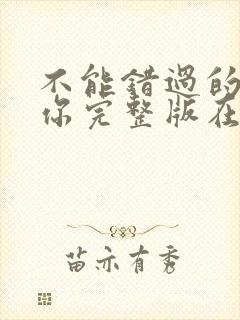 不能错过的
你完整版在
苗亦有秀